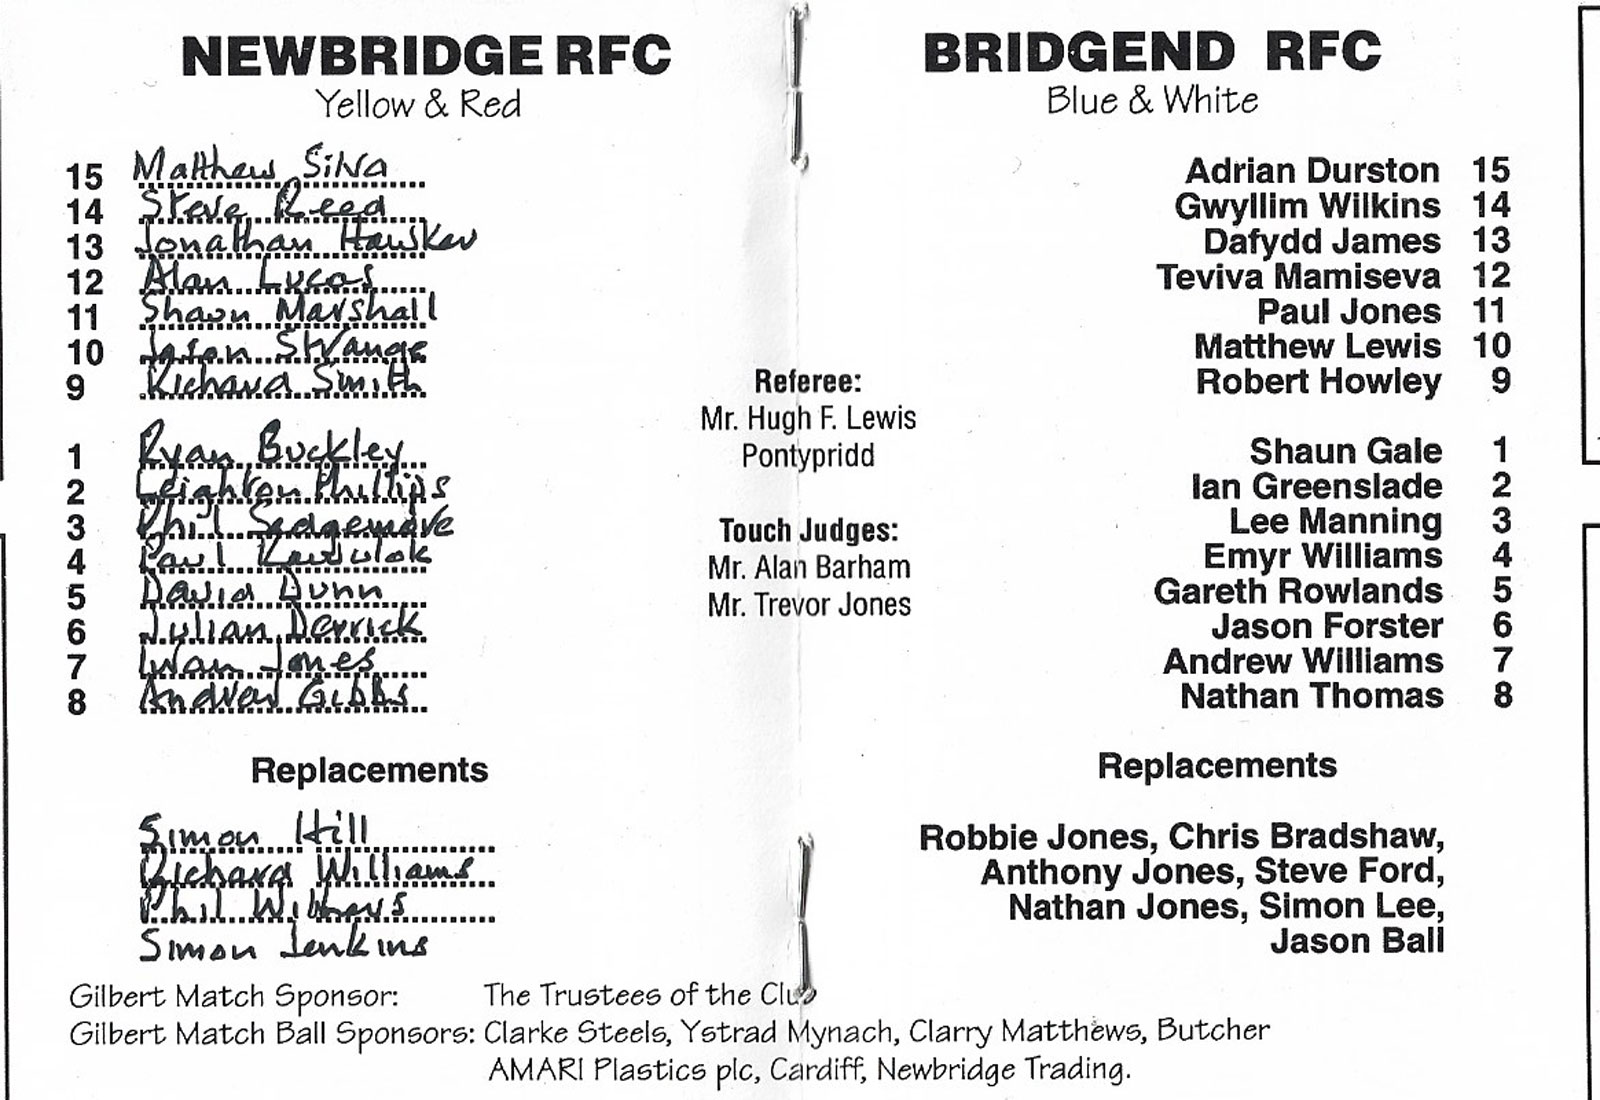 NEWBRIDGE RFC
Yellow & Red
15 Matthew Silva
14 Steve Reed
13 Jonathan Hawker
12 Alan Lucas
11 Shaun Marshall
10 Jason Strange
9 Richard Smith
1 Ryan Buckley
2 Leighton Phillips
3 Phil Sedgemore
4 Paul
5 David Dunn
6 Julian Derrick
7 Iwan Jones
8 Andrew Gibbs
Replacements
Simon Hill
Richard Williams
Phil Withers
Simon Jenkins
Referee:
Mr. Hugh F. Lewis
Pontypridd
Touch Judges:
Mr. Alan Barham
Mr. Trevor Jones
BRIDGEND RFC
Blue & White
Adrian Durston 15
Gwyllim Wilkins 14
Dafydd James 13
Teviva Mamiseva 12
Paul Jones 11
Matthew Lewis 10
Robert Howley 9
Shaun Gale 1
Ian Greenslade 2
Lee Manning 3
Emyr Williams 4
Gareth Rowlands 5
Jason Forster 6
Andrew Williams 7
Nathan Thomas 8
Replacements
Robbie Jones, Chris Bradshaw,
Anthony Jones, Steve Ford,
Nathan Jones, Simon Lee,
Jason Ball
Gilbert Match Sponsor: The Trustees of the Club
Gilbert Match Ball Sponsors: Clarke Steels, Ystrad Mynach, Clarry Matthews, Butcher
AMARI Plastics plc, Cardiff, Newbridge Trading.